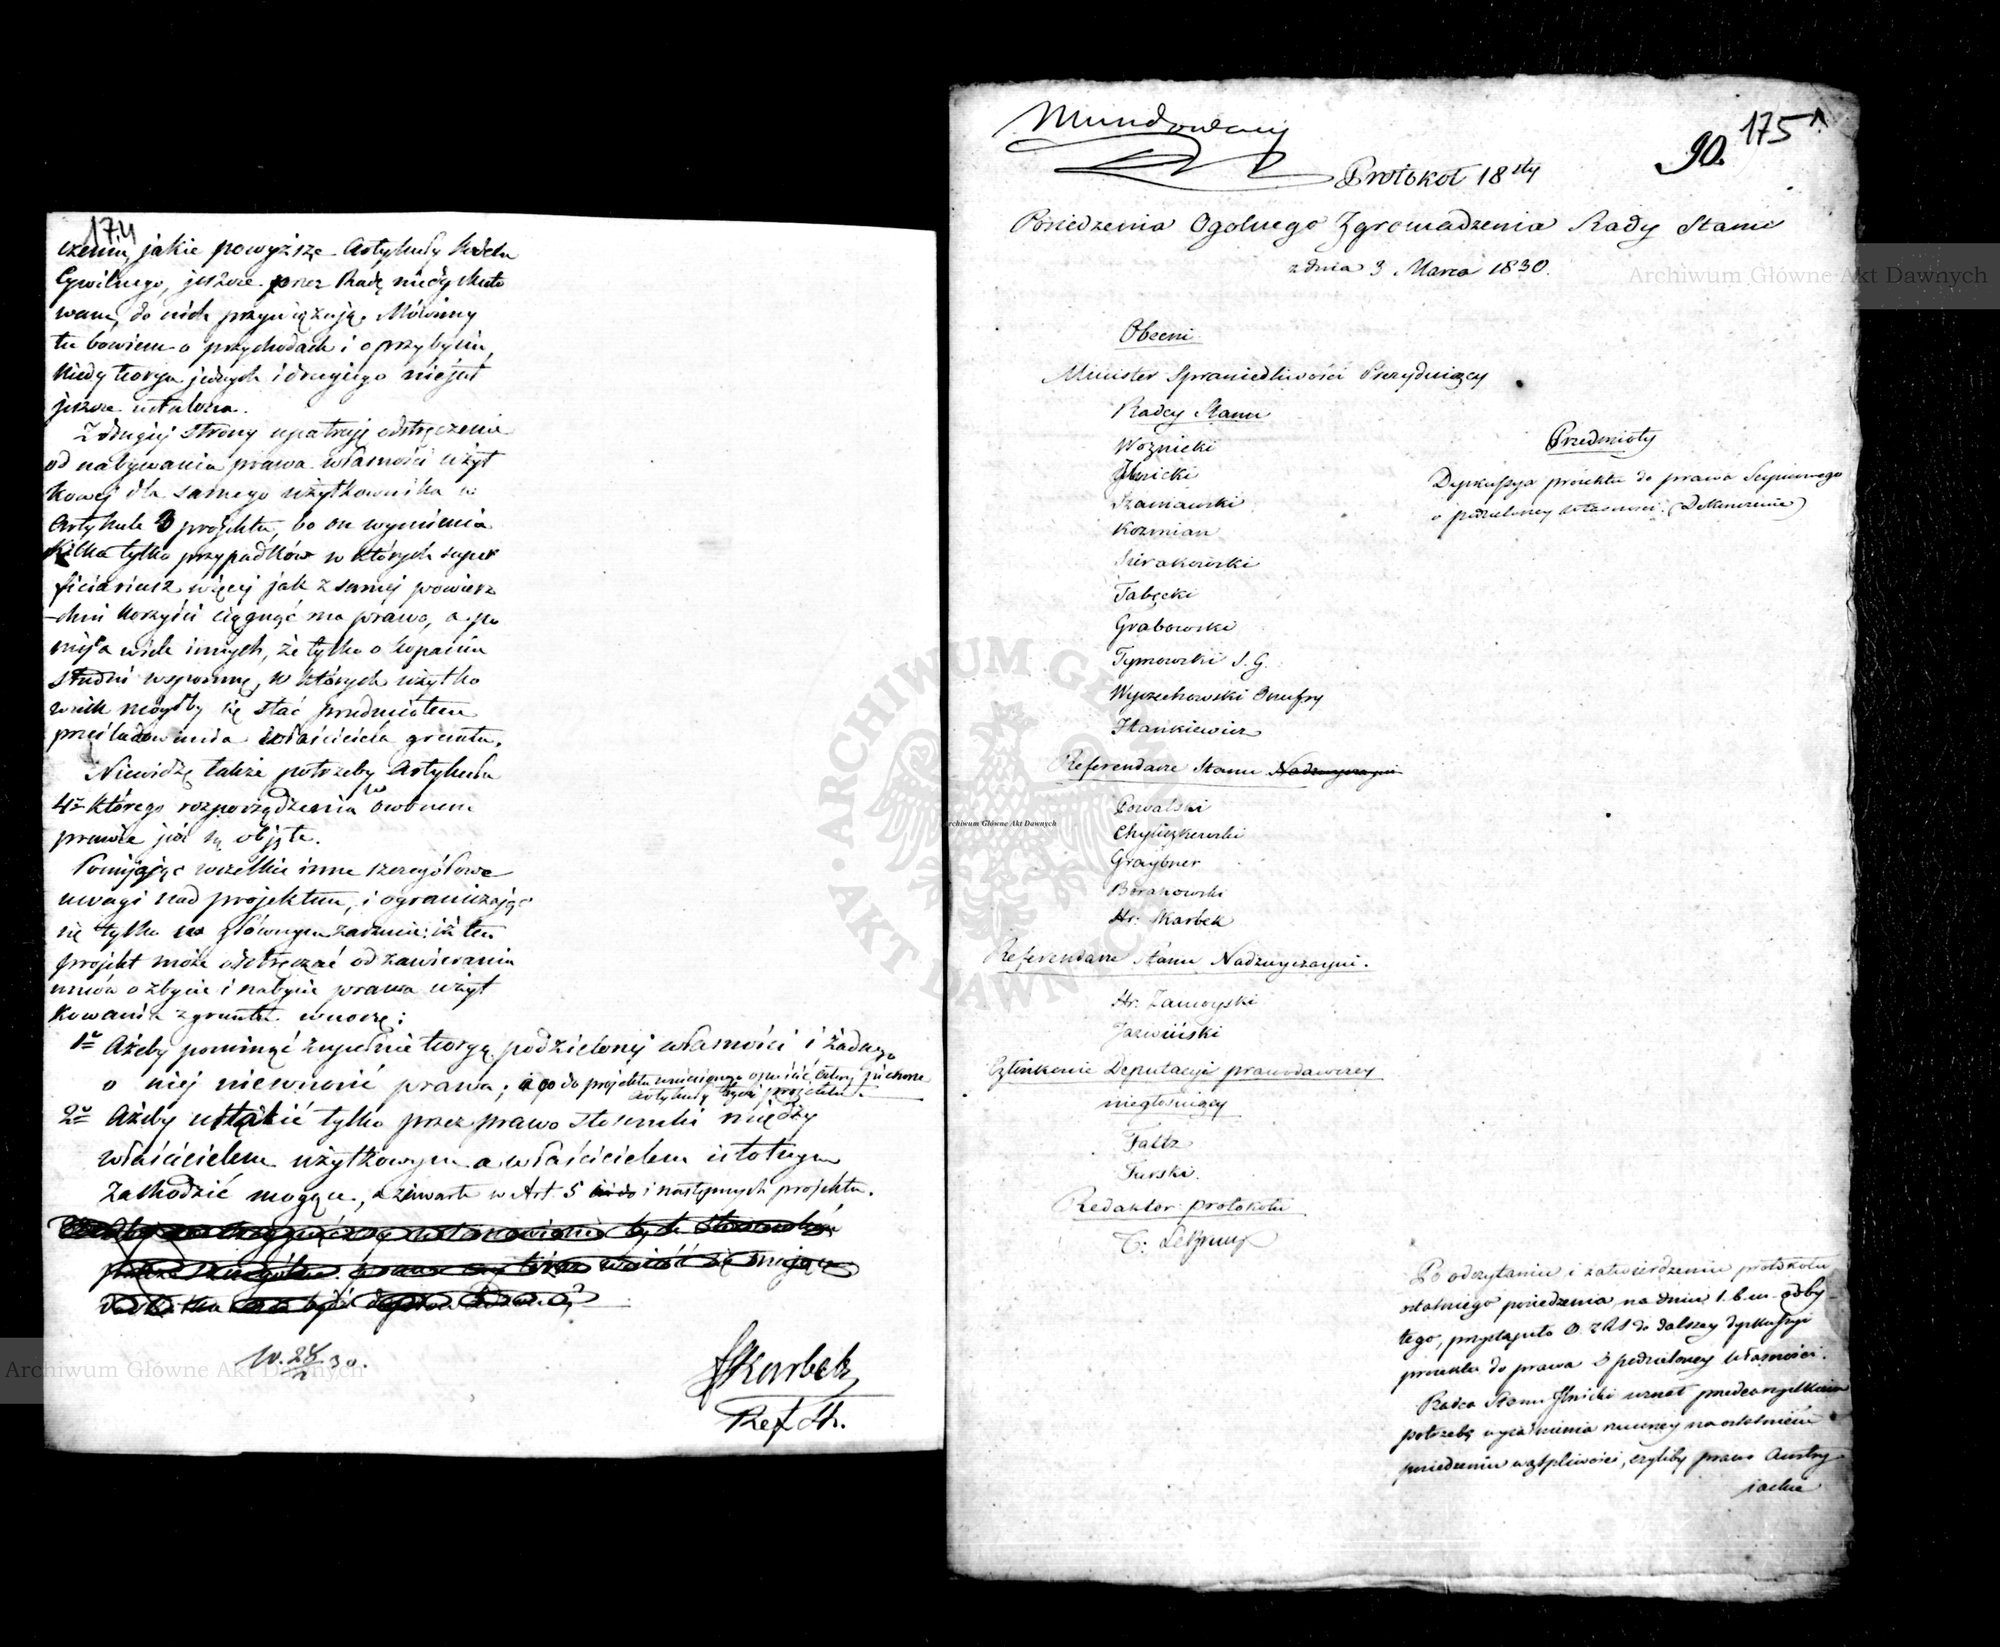 174
czenia, jakie powyższe Artykuły Kodexu
Cywilnego, jeszcze przez Radę niedyskuto
wane, do nich przywiązują. Mówimy
tu bowiem o przychodach i o przybyciu,
kiedy teorya jednych i drugiego niejest
jeszcze ustalona.
Z drugiej strony upatruję odstręczenie
od nabywania prawa własności użyt
kowej dla samego użytkownika w
Artykule 3 projektu, bo on wymienia
kilka tylko przypadków w których super
ficiariusz więcej jak z samej powierz
chni korzyści ciągnąć ma prawo, a po
mija wiele innych, że tylko o kopaniu
studni wspomnę, w których użytko
wnik mógłby się stać przedmiotem
prześladowania właściciela gruntu.
Niewidzę także potrzeby Artykułu
4º którego rozporządzenia w owonem
prawie już są objęte.
Pomijając wszelkie inne szczegółowe
uwagi nad projektem, i ograniczając
się tylko na głównym zadaniu: iż ten
projekt może odstręczać od zawierania
umów o zbycie i nabycie prawa użyt
kowania z gruntu wnoszę:
1º Ażeby pominąć zupełnie teoryą podzielonej własności i żadnego
o niej niewnosić prawa; a co do projektu wniesionego opuścić cztery pierwsze
Artykuły tegoż projektu.
2º Ażeby ustalić tylko przez prawo stosunki między
właścicielem użytkowym a właścicielem istotnym
zachodzić mogące, a zawarte w Art. 5 i następnych projektu.
W. 28/2 30.
FSkarbek
Ref. St.
Mundowany
90.
175
Protokół 18sty
Posiedzenia Ogolnego Zgromadzenia Rady Stanu
z dnia 3 Marca 1830.
Obecni
Minister Sprawiedliwości Prezydujący
Radcy Stanu
Woźnicki
Ilnicki
Szaniawski
Kozmian
Sierakowski
Tabęcki
Grabowski
Tymowski J. G.
Wyczechowski Onufry
Stankiewicz
Referendarze Stanu Nadzwyczayni
Kowalski
Chyliczkowski
Graybner
Borakowski
Hr: Skarbek
Referendarze Stanu Nadzwyczayni.
Hr: Zamoyski
Jazwiński
Członkowie Deputacyi prawodawczey
niegłosuiący
Faltz
Turski.
Redaktor protokołu
Przedmioty
Dyskussya proiektu do prawa Seymowego
o podzieloney własności. (Dokończenie)
Po odczytaniu i zatwierdzeniu protokołu
ostatniego posiedzenia, na dniu 1. b. m. odby
tego, przystąpiło O. Z. R. S. do dalszey dyskussyi
proiektu do prawa o podzieloney własności.
Radca Stanu Ilnicki uznał przedewszystkiem
potrzebę wyjaśnienia rzuconey na ostatniem
posiedzeniu wątpliwości, czyliby prawo Austry
iackie